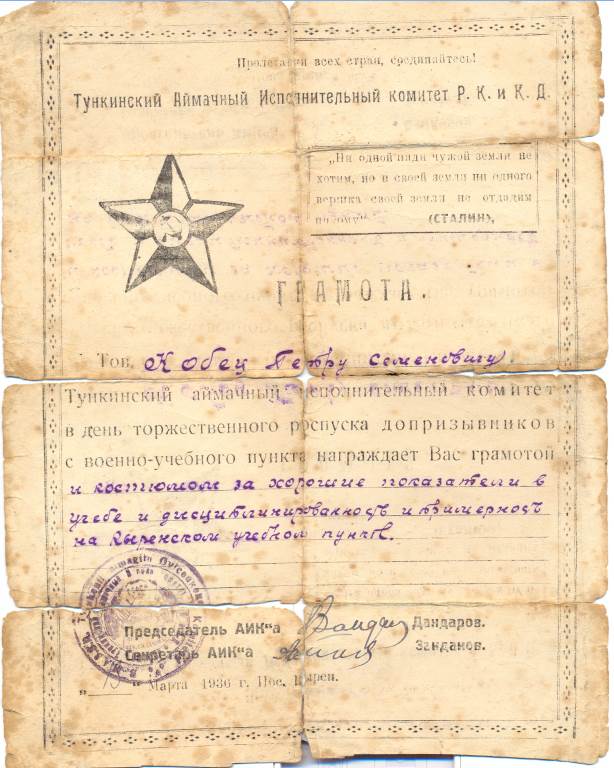 Пролетарии всех стран, соединяйтесь!
Тункинский Аймачный Исполнительный комитет Р. К. и К. Д.
„Ни одной пяди чужой земли не
хотим, но и своей земли ни одного
вершка своей земли не отдадим
никому“ (СТАЛИН),
ГРАМОТА.
Тов. Кобец Петру Семеновичу.
Тункинский аймачный исполнительный комитет
в день торжественного роспуска допризывников
с военно-учебного пункта награждает Вас грамотой
и костюмом за хорошие показатели в
учебе и дисциплинированность и примерность
на Кыренском учебном пункте.
Председатель АИК“а Дандаров.
Секретарь АИК“а Занданов.
Марта 1936 г. Пос. Кырен.